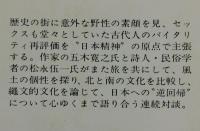 歴史の街に意外な野性の素顔を見、セック
スも堂々としていた古代人のバイタリ
ティ再評価を〝日本精神〟の原点で主張
する。作家の五木寛之氏と詩人・民俗学
者の松永伍一氏がまた旅を共にして、風
土の個性を探り、北と南の文化を比較し、
縄文的文化を論じて、日本への〝逆回帰〟
について心ゆくまで語り合う連続対談。